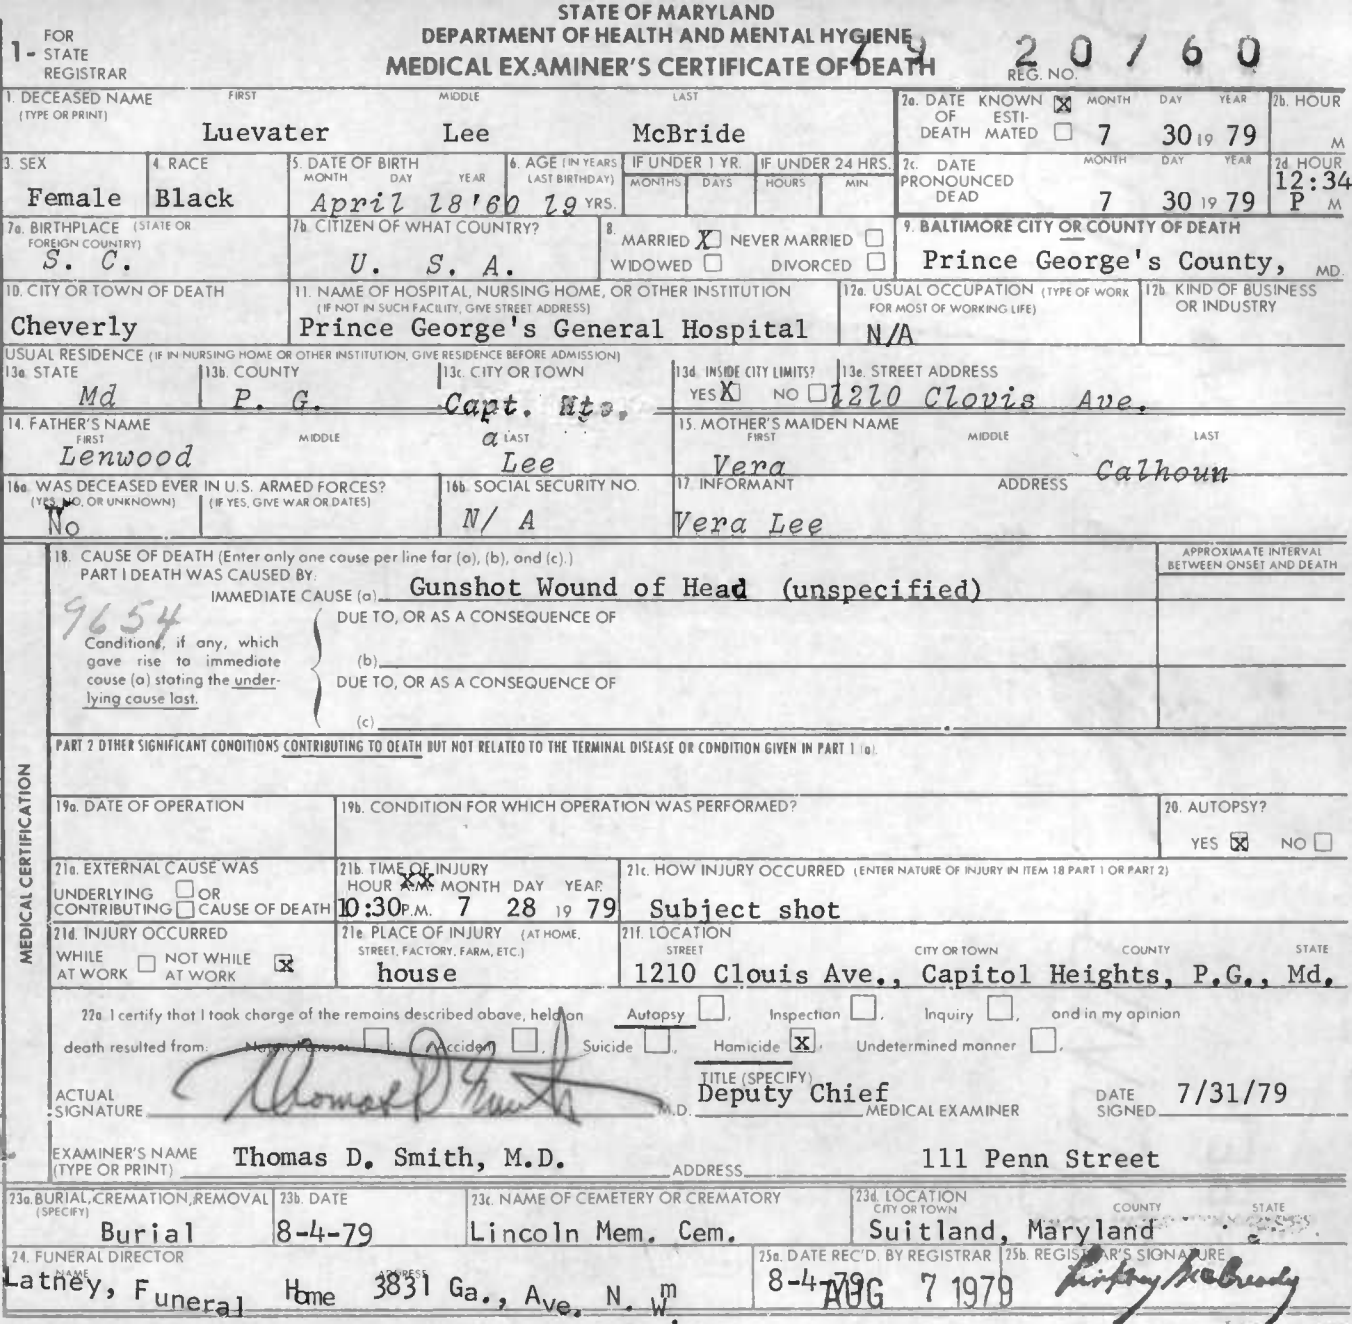 STATE OF MARYLAND
DEPARTMENT OF HEALTH AND MENTAL HYGIENE
MEDICAL EXAMINER'S CERTIFICATE OF DEATH
1- FOR STATE REGISTRAR
REG. NO. 79 20760
1. DECEASED NAME (TYPE OR PRINT) FIRST MIDDLE LAST
Luevater Lee McBride
2a. DATE OF DEATH KNOWN X ESTIMATED MONTH DAY YEAR 2b. HOUR
7 30 19 79 M
3. SEX 4. RACE 5. DATE OF BIRTH MONTH DAY YEAR 6. AGE (IN YEARS LAST BIRTHDAY) IF UNDER 1 YR. MONTHS DAYS IF UNDER 24 HRS. HOURS MIN.
Female Black April 18'60 19 YRS.
2c. DATE PRONOUNCED DEAD MONTH DAY YEAR 2d HOUR
7 30 19 79 12:34 P M
7a. BIRTHPLACE (STATE OR FOREIGN COUNTRY) 7b. CITIZEN OF WHAT COUNTRY?
S. C. U. S. A.
8. MARRIED X NEVER MARRIED
WIDOWED DIVORCED
9. BALTIMORE CITY OR COUNTY OF DEATH
Prince George's County, MD.
10. CITY OR TOWN OF DEATH 11. NAME OF HOSPITAL, NURSING HOME, OR OTHER INSTITUTION (IF NOT IN SUCH FACILITY, GIVE STREET ADDRESS)
Cheverly Prince George's General Hospital
12a. USUAL OCCUPATION (TYPE OF WORK FOR MOST OF WORKING LIFE) 12b. KIND OF BUSINESS OR INDUSTRY
N/A
USUAL RESIDENCE (IF IN NURSING HOME OR OTHER INSTITUTION, GIVE RESIDENCE BEFORE ADMISSION)
13a. STATE 13b. COUNTY 13c. CITY OR TOWN 13d. INSIDE CITY LIMITS? 13e. STREET ADDRESS
Md P. G. Capt. Hts. YES X NO 1210 Clovis Ave.
14. FATHER'S NAME FIRST MIDDLE LAST
Lenwood a Lee
15. MOTHER'S MAIDEN NAME FIRST MIDDLE LAST
Vera Calhoun
16a. WAS DECEASED EVER IN U.S. ARMED FORCES? (YES, NO, OR UNKNOWN) (IF YES, GIVE WAR OR DATES)
No
16b. SOCIAL SECURITY NO.
N/ A
17. INFORMANT ADDRESS
Vera Lee
MEDICAL CERTIFICATION
18. CAUSE OF DEATH (Enter only one cause per line for (a), (b), and (c).)
APPROXIMATE INTERVAL BETWEEN ONSET AND DEATH
PART I DEATH WAS CAUSED BY:
IMMEDIATE CAUSE (a) Gunshot Wound of Head (unspecified)
9654
DUE TO, OR AS A CONSEQUENCE OF
Conditions, if any, which gave rise to immediate cause (a) stating the underlying cause last.
(b)
DUE TO, OR AS A CONSEQUENCE OF
(c)
PART 2 OTHER SIGNIFICANT CONDITIONS CONTRIBUTING TO DEATH BUT NOT RELATED TO THE TERMINAL DISEASE OR CONDITION GIVEN IN PART 1 (a).
19a. DATE OF OPERATION 19b. CONDITION FOR WHICH OPERATION WAS PERFORMED? 20. AUTOPSY?
YES X NO
21a. EXTERNAL CAUSE WAS
UNDERLYING OR
CONTRIBUTING CAUSE OF DEATH
21b. TIME OF INJURY
HOUR A.M. MONTH DAY YEAR
10:30 P.M. 7 28 19 79
21c. HOW INJURY OCCURRED (ENTER NATURE OF INJURY IN ITEM 18 PART 1 OR PART 2)
Subject shot
21d. INJURY OCCURRED
WHILE AT WORK NOT WHILE AT WORK X
21e. PLACE OF INJURY (AT HOME, STREET, FACTORY, FARM, ETC.)
house
21f. LOCATION
STREET CITY OR TOWN COUNTY STATE
1210 Clouis Ave., Capitol Heights, P.G., Md.
22a I certify that I took charge of the remains described above, held an Autopsy, Inspection, Inquiry, and in my opinion
death resulted from: Natural causes, Accident, Suicide, Homicide X, Undetermined manner.
ACTUAL SIGNATURE Thomas D Smith M.D.
TITLE (SPECIFY)
Deputy Chief MEDICAL EXAMINER
DATE SIGNED 7/31/79
EXAMINER'S NAME (TYPE OR PRINT) Thomas D. Smith, M.D. ADDRESS 111 Penn Street
23a. BURIAL, CREMATION, REMOVAL (SPECIFY) 23b. DATE 23c. NAME OF CEMETERY OR CREMATORY 23d. LOCATION CITY OR TOWN COUNTY STATE
Burial 8-4-79 Lincoln Mem. Cem. Suitland, Maryland
24. FUNERAL DIRECTOR NAME ADDRESS
Latney, Funeral Home 3831 Ga., Ave. N. W.
25a. DATE REC'D. BY REGISTRAR 25b. REGISTRAR'S SIGNATURE
8-4-79 AUG 7 1979